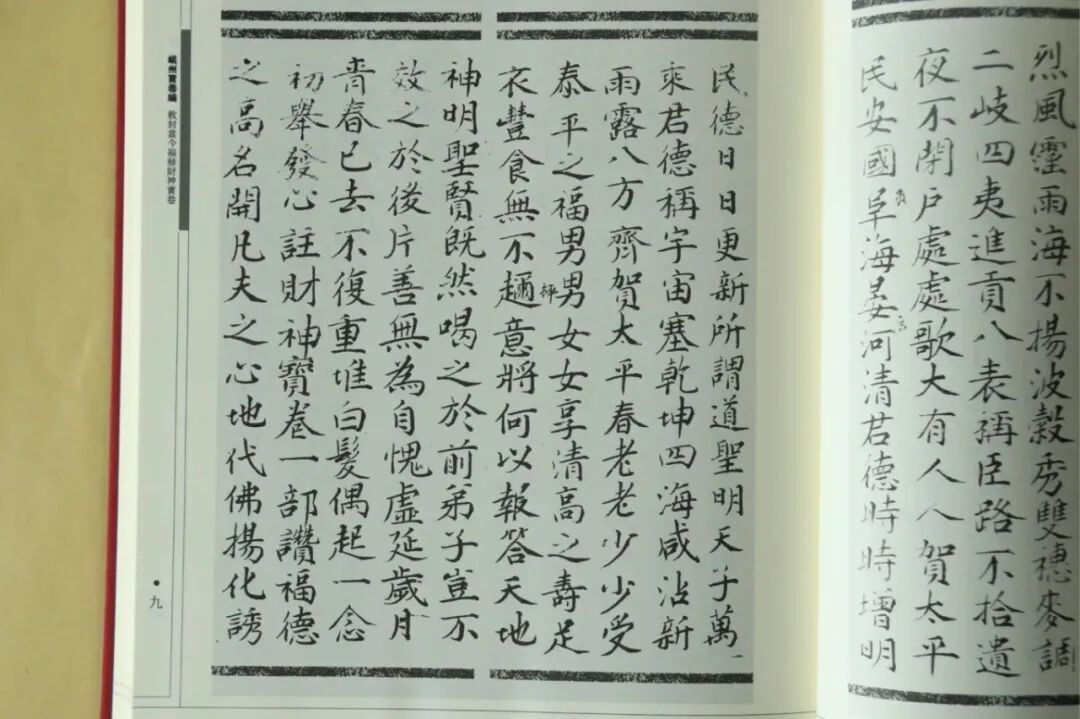 烈風霪雨海不揚波榖秀雙穗麥調
二岐四夷進貢八表稱臣路不拾遺
夜不閉戶處處歌大有人人賀太平
民安國阜海晏河清君德時時增明
民德日日更新所謂道聖明天子萬
乘君德稱宇宙塞乾坤四海咸沾新
雨露八方齊賀太平春老老少少受
泰平之福男男女女享清高之壽足
衣豐食無不趣意將何以報答天地
神明聖賢既然喝之於前弟子豈不
效之於後片善無為自愧虛延歲月
青春已去不復重堆白髮偶起一念
初舉發心註財神寶卷一部讚福德
之高名開凡夫之心地代佛揚化誘
岷州寶卷編 敕封當今福祿財神寶卷
•九